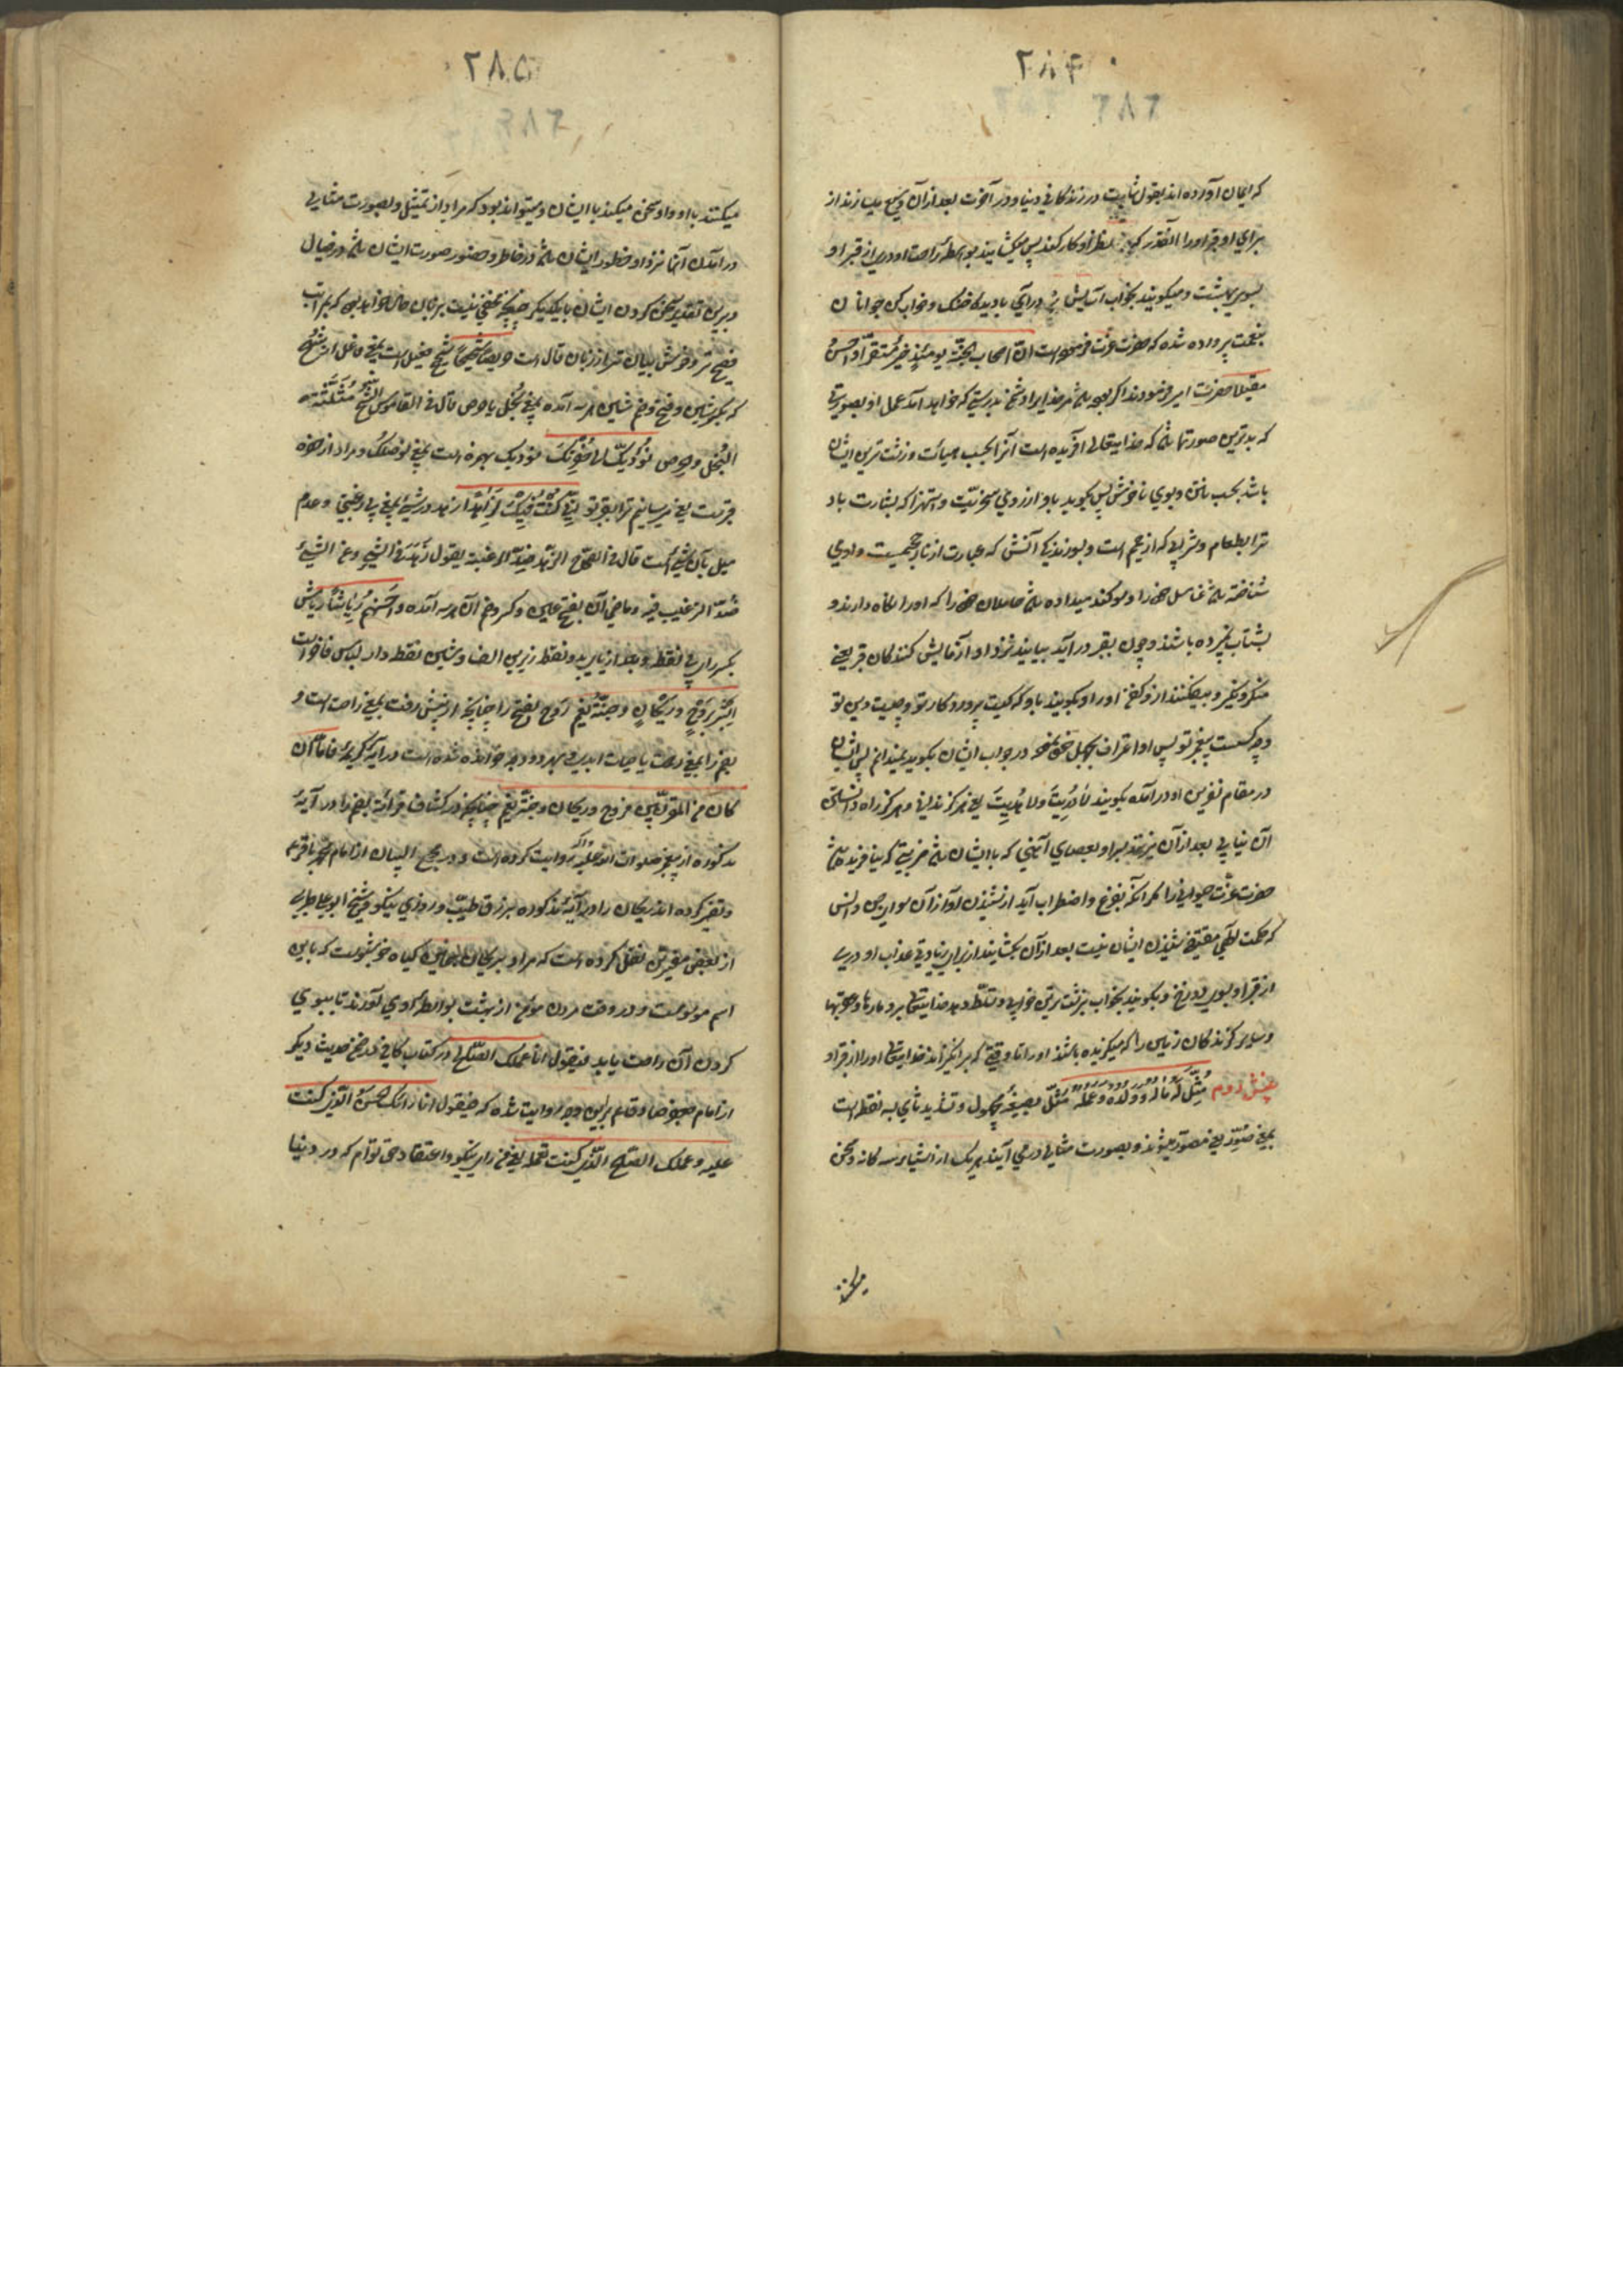 ۲۸۴
که ایمان آورده اند بقول ثابت در زندکانی دنیا و در آخرت بعد از آن وسیع میسازند از
برای او قبر او را آنقدر که نظر او کار کند پس میکشایند بواسطهٔ راحت او دری از قبر او
بسوی بهشت و میکویند بخواب آسایش در آی با دیدهٔ خنک و خواب کن جوانان
بنعمت پرورده شده که حضرت عزت فرموده است انّ اصحاب الجنّة یومئذٍ خیرٌ مستقرّاً و احسنُ
مقیلا حضرت امیر فرمودند اگر بوده باشد مر خدایرا دشمن بدرستی که خواهد آمد عمل او بصورتی
که بدترین صورتها باشد که خدایتعالی آفریده است آنرا بحسب هیأت و زشت ترین ایشان
باشد بحسب نتن و بوی ناخوش پس بکوید باو از روی سخریّت و استهزا که بشارت باد
ترا بطعام و شرابی که از حمیم است و بسوزندکی آتش که عبارت از نار جحیمست و او می
شناخته باشد غاسل خود را و سوکند میداده باشد حاملان خود را که او را نکاه دارند و
بشتاب نبرده باشند و چون بقبر در آید بیایند نزد او آزمایش کنندکان قبر یعنی
منکر و نکیر و بیفکنند از و کفن او را و بکویند باو که کیست پروردکار تو و چیست دین تو
و چه کسست پیغمبر تو پس او اعتراف بجهل خود نموده در جواب ایشان بکوید نمیدانم پس ایشان
در مقام نفرین او در آمده بکویند لا دَرَیتَ ولا هُدِیتَ یعنی هرکز ندانی و هرکز راه دانستن
آن نیابی بعد از آن بزنند بر سر او بعصای آهنی که با ایشان باشد ضربتی که نیافریده باشد
حضرت عزّت حیوانیرا مکر آنکه بفزع و اضطراب آید از شنیدن آواز آن سوای جن و انس
که حکمت الهی مقتضی شنیدن ایشان نیست بعد از آن بکشایند از برای زیادتی عذاب او دری
از قبر او بسوی دوزخ و بکویند بخواب بزشت ترین خوابی و مسلّط دهد خدایتعالی برو مارها و عقربها
و سایر کزندکان زمین را که میکزیده باشند او را تا وقتی که بر انکیزاند خدایتعالی او را از قبر او
بخش دوم مُثِّلَ لَهُ مالُه و ولدُه و عملُه مُثِّلَ بصیغهٔ مجهول و تشدید ثای سه نقطه است
بمعنی صُوِّرَ یعنی مصوّر میشوند و بصورت مثالی در می آیند هر یک از اشیاء سه کانه و سخن
میکنند
۲۸۵
میکنند با او و او سخن میکند با ایشان و میتواند بود که مراد از تمثیل و بصورت مثالی
در آمدن آنها نزد او خطور ایشان باشد در خاطر و حضور صورت ایشان باشد در خیال
و برین تقدیر سخن کردن ایشان با یکدیکر چنانچه مخفی نیست بزبان حال خواهد بود که بمراتب
فصیح تر و خوش بیان تر از زبان قال است حریصاً شحیحاً شحیح بخیل است بمعنی فاعل از شُحّ
که بکسر شین و فتح و ضم شین هر سه آمده بمعنی بُخل با حرص قال فی القاموس الشح مثلّثة
البُخل و حرص نُؤَدّیک الی حُفرتک نؤدیک بهمزه است بمعنی نوصلک و مراد از حفره
قبرست یعنی میرسانیم ترا بقبر تو انی کنتُ فیک لزاهداً از زهد در شیء بمعنی بی رغبتی و عدم
میل بآن شیء است قال فی الصحاح الزهد ضدّ الرغبة یقول زَهَدَ فی الشیء و عن الشیء
ضدّ الرغبت فیه و ماضی آن بفتح عین و کسر و ضم آن هر سه آمده و احسنهم رِیاشاً ریاش
بکسر رای بی نقطه و بعد از یای دو نقطه زیرین الف و شین نقطه دار لباس فاخر است
اَبشِر بِرَوحٍ و ریحانٍ و جنّةِ نعیم رَوح بفتح را چنانچه از پیش رفت بمعنی راحت است و
بضم را بمعنی رحمت یا حیات ابدی و بهر دو وجه خوانده شده است در آیهٔ کریمهٔ فامّا ان
کان من المقرّبین فروح و ریحان و جنّة نعیم چنانچه در کشاف قرائت بضم را در آیهٔ
مذکوره از پیغمبر صلوات الله علیه و آله روایت کرده است و در مجمع البیان از امام محمد باقر ع
و تفسیر کرده اند ریحان را درین آیهٔ مذکوره برزق طیّب و روزی نیکو و شیخ ابوعلی طبرسی
از بعضی مفسّرین نقل کرده است که مراد بریحان همین کیاه خوشبوست که باین
اسم موسومست و در وقت مردن مؤمن از بهشت بواسطهٔ او می آورند تا ببوی
کردن آن راحت یابد فیقول انا عملک الصالح در کتاب کافی در ضمن حدیث دیکر
از امام جعفر صادق ع برین وجه روایت شده که فیقول انا رأیک الحسنُ الّذی کنت
علیه و عملک الصالح الّذی کنت تعمله یعنی من رای نیکو و اعتقاد حق توام که در دنیا